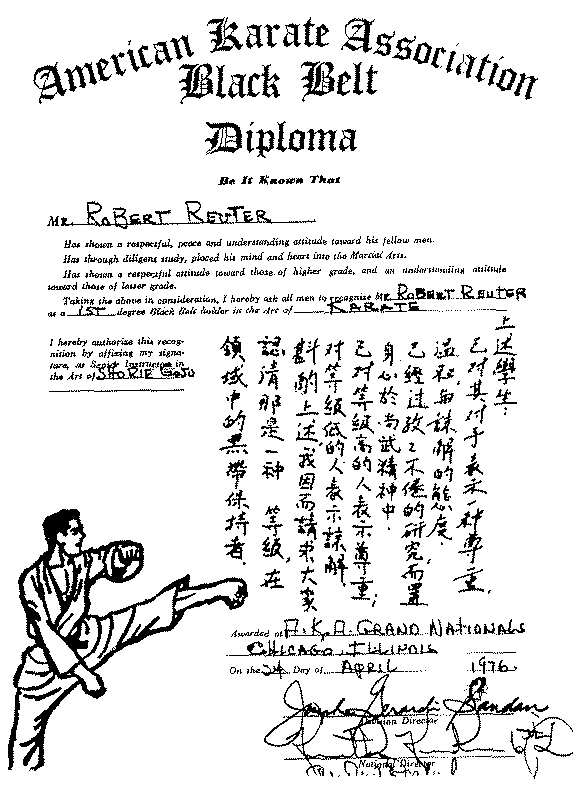 American Karate Association
Black Belt
Diploma
Be It Known That
Mr. ROBERT REUTER
Has shown a respectful, peace and understanding attitude toward his fellow men.
Has through diligent study, placed his mind and heart into the Martial Arts.
Has shown a respectful attitude toward those of higher grade, and an understanding attitude
toward those of lesser grade.
Taking the above in consideration, I hereby ask all men to recognize Mr. ROBERT REUTER
as a 1ST degree Black Belt holder in the Art of KARATE
I hereby authorize this recog-
nition by affixing my signa-
ture, as Senior Instructor in
the Art of SHORIE GOJU
上述學生:
已对其对于表示一种尊重,
温和和諒解的態度.
已經过孜孜不倦的研究而置
身心於尚武精神中.
已对等級高的人表示尊重,
对等級低的人表示諒解.
斟酌上述,我因而請求大家
認清那是一种 等級,在
領域中的黑帶保持者.
Awarded at A.K.A. GRAND NATIONALS
CHICAGO, ILLINOIS
On the 24 Day of APRIL 1976
Director
National Director